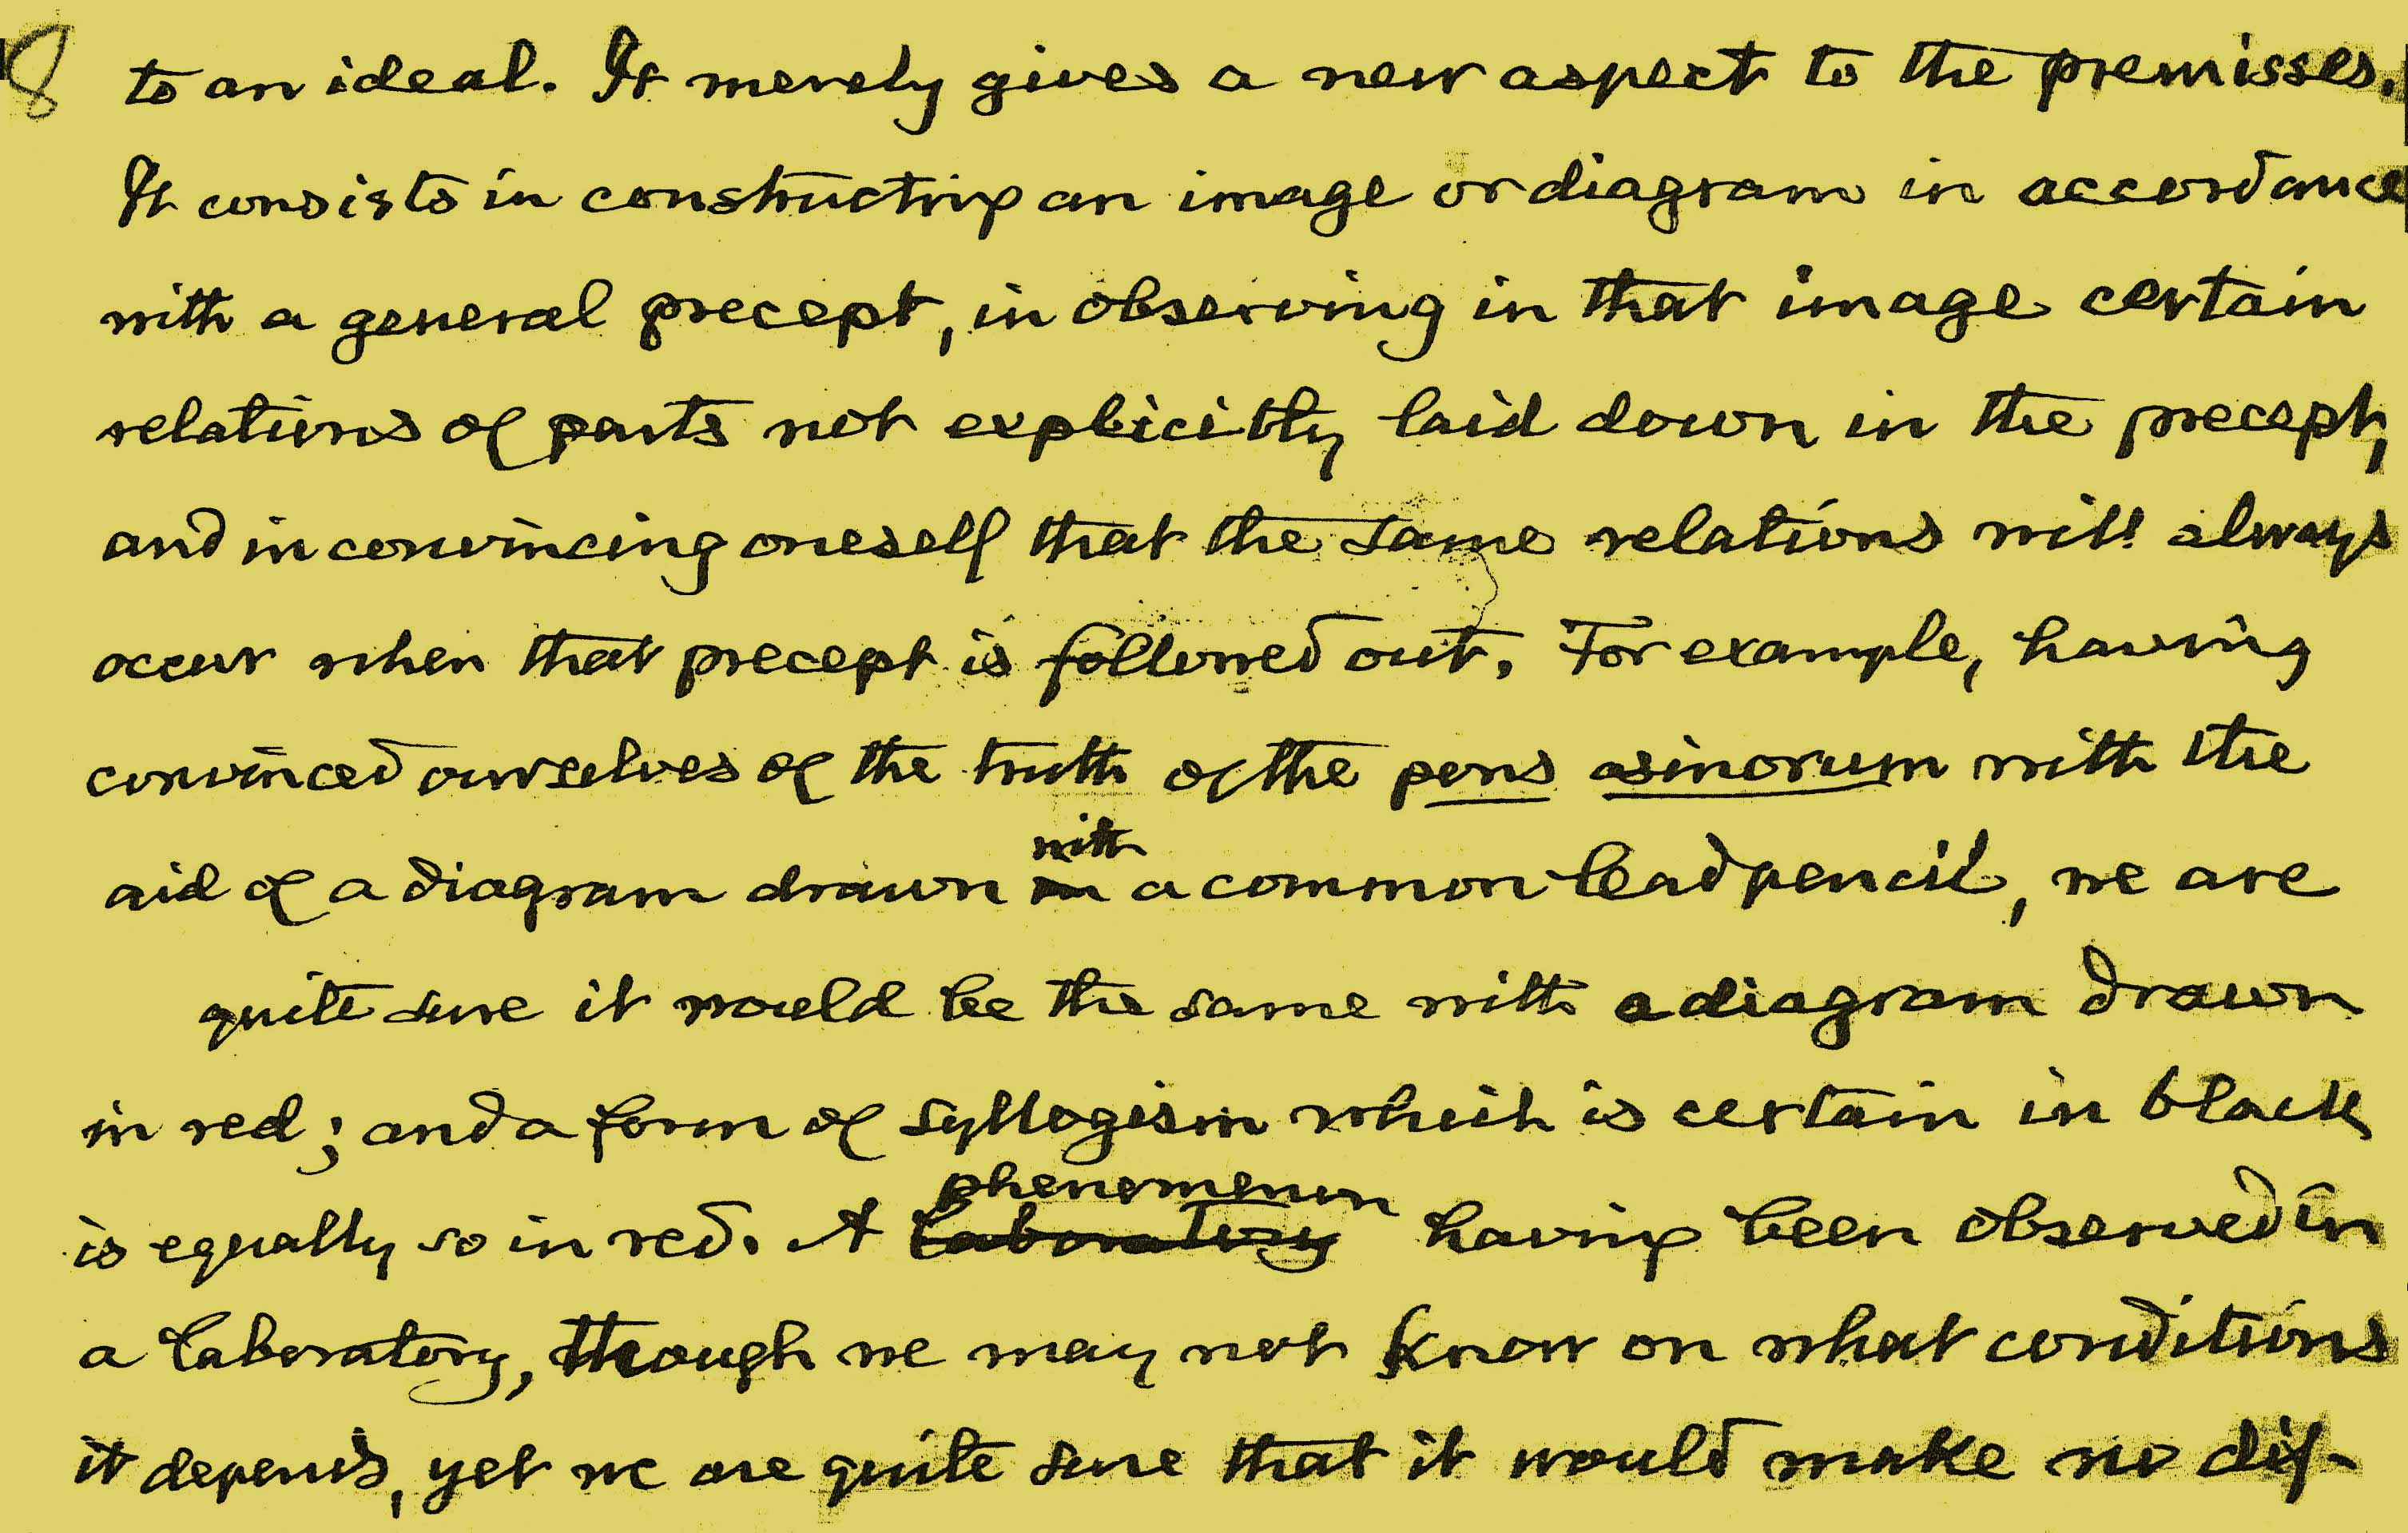 8 to an ideal. It merely gives a new aspect to the premisses.
It consists in constructing an image or diagram in accordance
with a general precept, in observing in that image certain
relations of parts not explicitly laid down in the precept,
and in convincing oneself that the same relations will always
occur when that precept is followed out. For example, having
convinced ourselves of the truth of the pons asinorum with the
with
aid of a diagram drawn a common lead pencil, we are
quite sure it would be the same with a diagram drawn
in red; and a form of syllogism which is certain in black
phenomenon
is equally so in red. A laboratory having been observed in
a laboratory, though we may not know on what conditions
it depends, yet we are quite sure that it would make no dif-